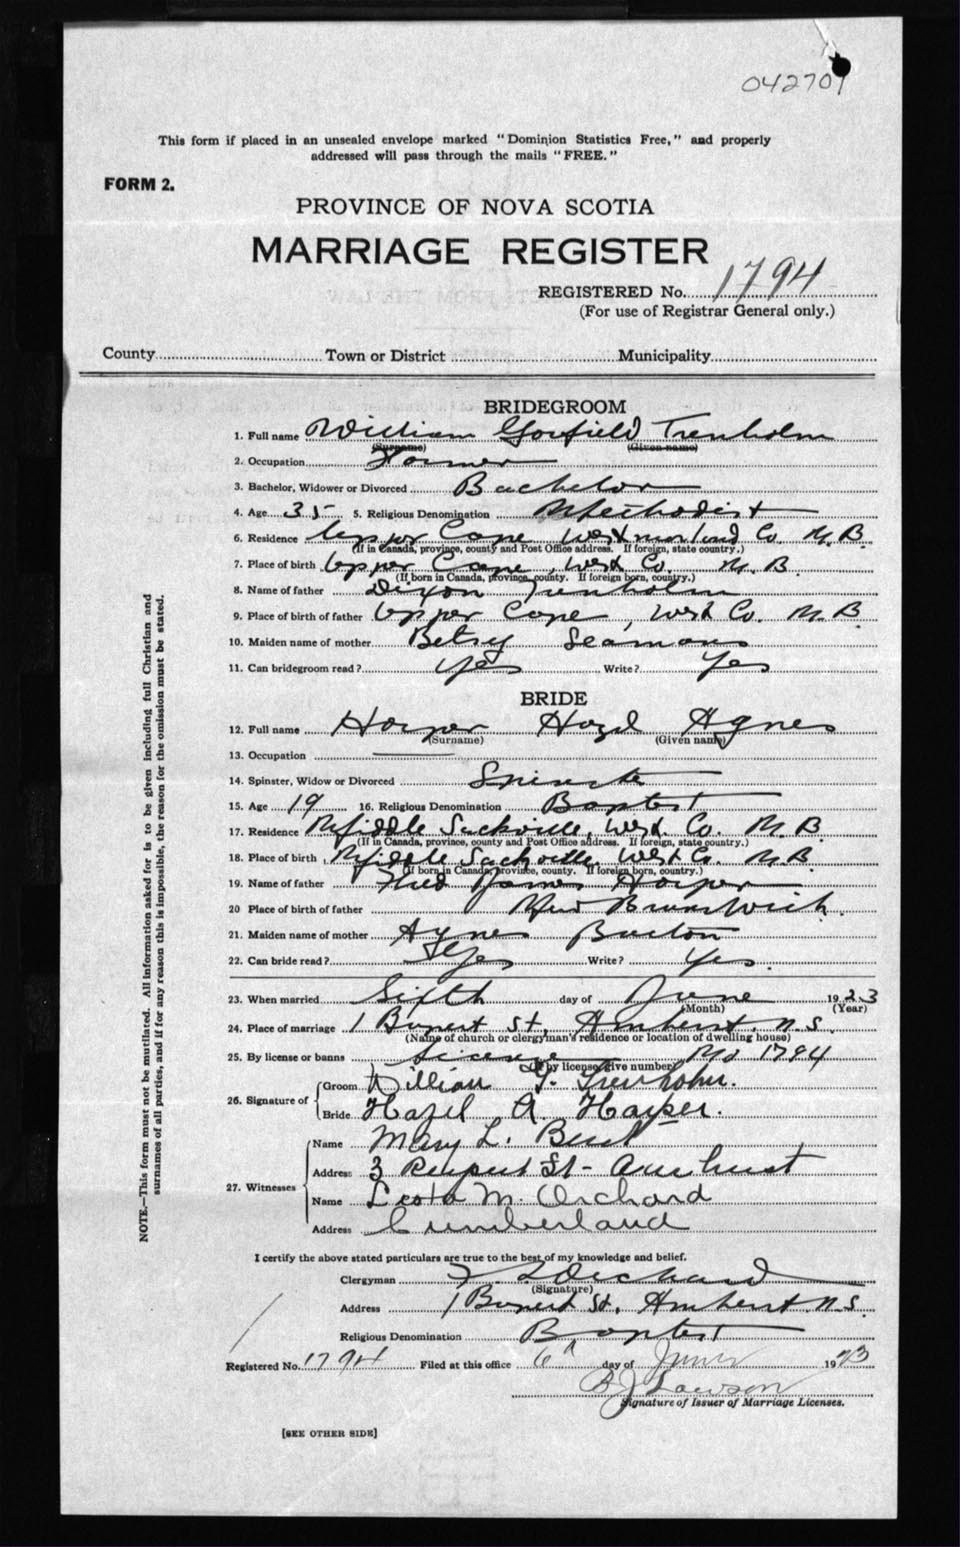 042701
This form if placed in an unsealed envelope marked "Dominion Statistics Free," and properly
addressed will pass through the mails "FREE."
FORM 2.
PROVINCE OF NOVA SCOTIA
MARRIAGE REGISTER
REGISTERED No. 1794
(For use of Registrar General only.)
County Town or District Municipality
BRIDEGROOM
1. Full name William Garfield Trenholm
(Surname) (Given name)
2. Occupation Farmer
3. Bachelor, Widower or Divorced Bachelor
4. Age 35 5. Religious Denomination Methodist
6. Residence Upper Cape Westmorland Co. N.B.
(If in Canada, province, county and Post Office address. If foreign, state country.)
7. Place of birth Upper Cape, West Co. N.B.
(If born in Canada, province, county. If foreign born, country.)
8. Name of father Dixon Trenholm
9. Place of birth of father Upper Cape, West Co. N.B.
10. Maiden name of mother Betsy Seamans
11. Can bridegroom read? Yes Write? Yes
BRIDE
12. Full name Harper Hazel Agnes
(Surname) (Given name)
13. Occupation
14. Spinster, Widow or Divorced Spinster
15. Age 19 16. Religious Denomination Baptist
17. Residence Middle Sackville, West. Co. N.B.
(If in Canada, province, county and Post Office address. If foreign, state country.)
18. Place of birth Middle Sackville, West Co. N.B.
(If born in Canada, province, county. If foreign born, country.)
19. Name of father Fred James Harper
20 Place of birth of father New Brunswick
21. Maiden name of mother Agnes Barton
22. Can bride read? Yes Write? Yes.
23. When married Sixth day of June 1923
(Month) (Year)
24. Place of marriage 1 Rupert St, Amherst, N.S.
(Name of church or clergyman's residence or location of dwelling house)
25. By license or banns License No 1794
(If by license, give number)
26. Signature of Groom William G. Trenholm.
Bride Hazel A. Harper.
27. Witnesses Name Mary L.
Address 3 Rupert St - Amherst
Name Leota M. Orchard
Address Cumberland
I certify the above stated particulars are true to the best of my knowledge and belief.
Clergyman Orchard
(Signature)
Address 1 Rupert St, Amherst N.S.
Religious Denomination Baptist
Registered No. 1794 Filed at this office 6th day of June 1923
B J Lawson
Signature of Issuer of Marriage Licenses.
[SEE OTHER SIDE]
NOTE.—This form must not be mutilated. All information asked for is to be given including full Christian and
surnames of all parties, and if for any reason this is impossible, the reason for the omission must be stated.